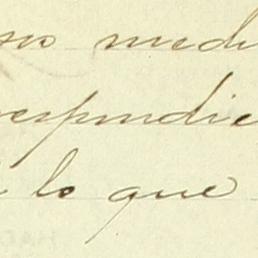 no medi
respondie
lo que